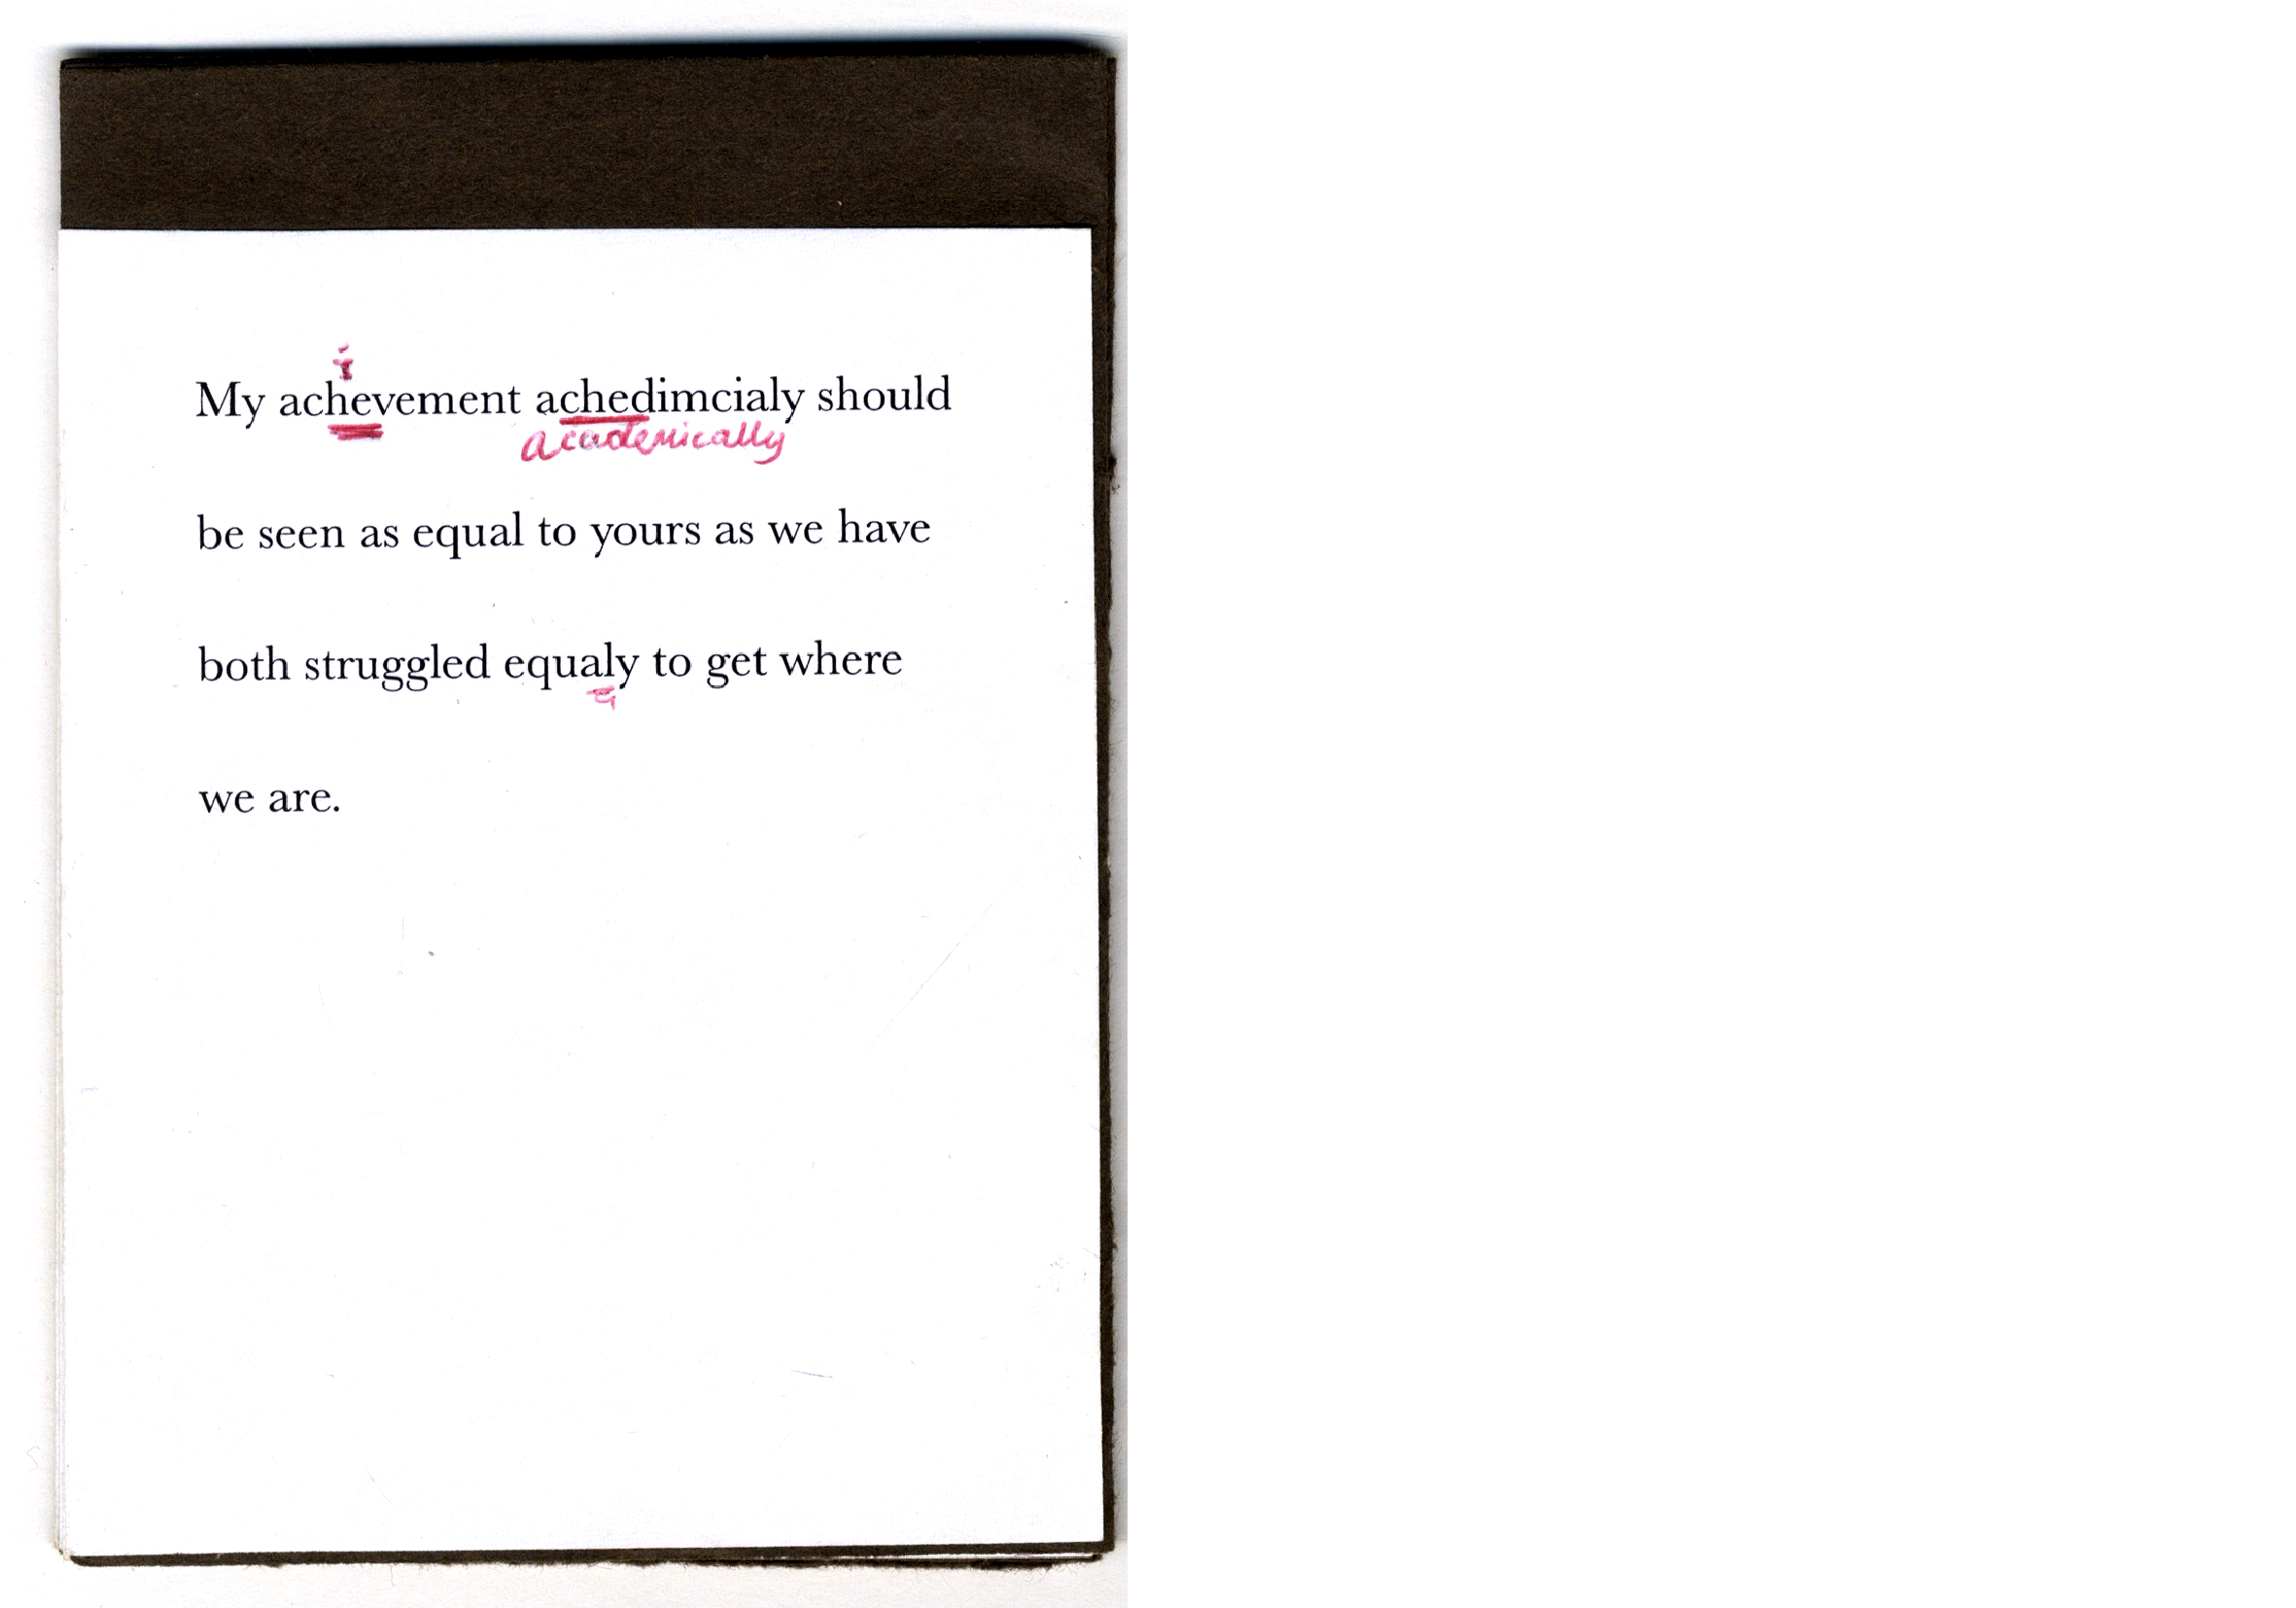 i
My achevement achedimcialy should
academically
be seen as equal to yours as we have
both struggled equaly to get where
we are.